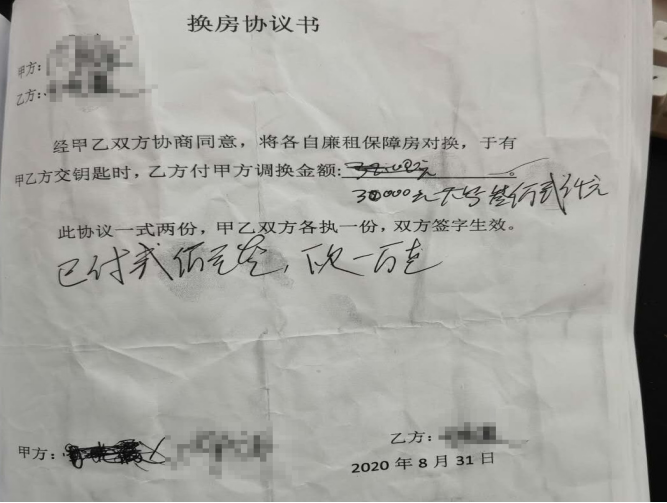 换房协议书
甲方:
乙方:
经甲乙双方协商同意，将各自廉租保障房对换，于有
甲乙方交钥匙时，乙方付甲方调换金额:
000元大写
此协议一式两份，甲乙双方各执一份，双方签字生效。
已付贰佰元整，下欠一百元
甲方:
乙方:
2020年8月31日